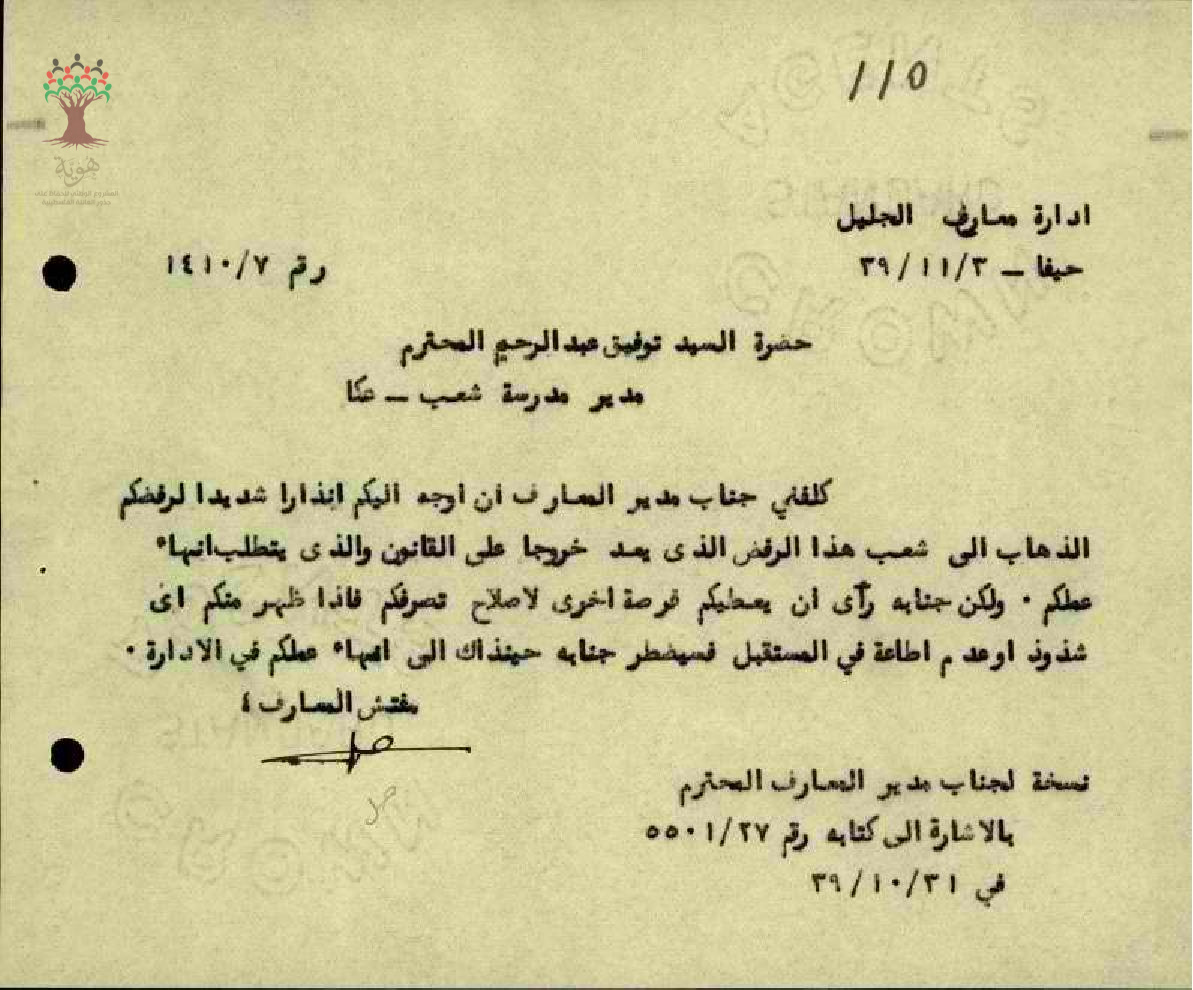 115
هوية
المشروع الوطني للحفاظ على
جذور العائلة الفلسطينية
ادارة معارف الجليل
حيفا – ٣٩/١١/٣
رقم ١٤١٠/٧
حضرة السيد توفيق عبدالرحيم المحترم
مدير مدرسة شعب – عكا
كلفني جناب مدير المعارف ان اوجه اليكم انذارا شديدا لرفضكم
الذهاب الى شعب هذا الرفض الذى يعد خروجا على القانون والذى يتطلب انهاء
عملكم ٠ ولكن جنابه رآى ان يعطيكم فرصة اخرى لاصلاح تصرفكم فاذا ظهر منكم اى
شذوذ او عدم اطاعة في المستقبل فسيضطر جنابه حينذاك الى انهاء عملكم في الادارة ٠
مفتش المعارف ٤
نسخة لجناب مدير المعارف المحترم
بالاشارة الى كتابه رقم ٥٥٠١/٢٧
في ٣٩/١٠/٣١